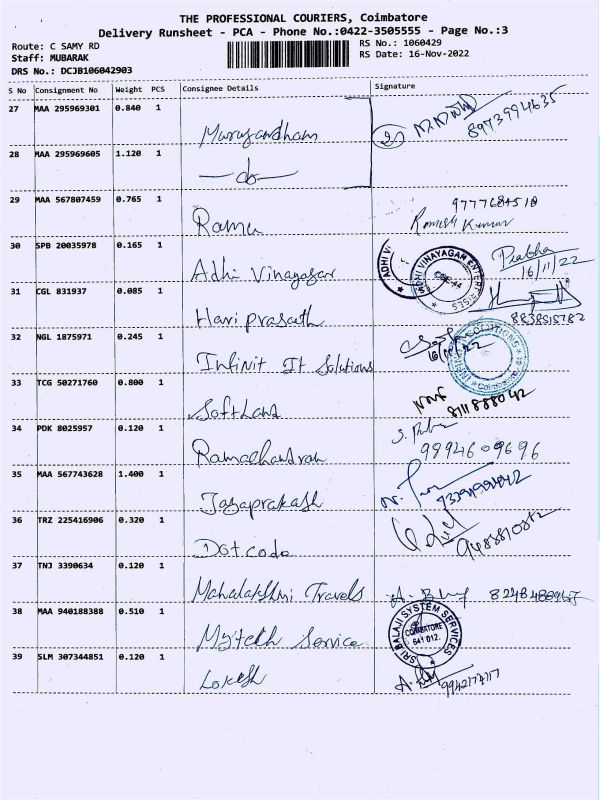 THE PROFESSIONAL COURIERS, Coimbatore
Delivery Runsheet - PCA - Phone No.:0422-3505555 - Page No.:3
Route: C SAMY RD
RS No.: 1060429
Staff: MUBARAK
RS Date: 16-Nov-2022
DRS No.: DCJB106042903
S No Consignment No Weight PCS Consignee Details Signature
27 MAA 295969301 0.840 1
Murugandham
8973994635
28 MAA 295969605 1.120 1
-do-
29 MAA 567807459 0.765 1
Ramu
Ramesh Kumar
30 SPB 20035978 0.165 1
Adhi Vinayagar
ADHI VI
ADHI VINAYAGAR ENTERPRISES
CBE-44
Prabha
16/11/22
31 CGL 831937 0.085 1
Hariprasath
8838515782
32 NGL 1875971 0.245 1
Infinit It Solutions
16/11/22
33 TCG 50271760 0.800 1
Softland
8111888042
34 PDK 8025957 0.120 1
Ramachandran
9994609696
35 MAA 567743628 1.400 1
Jayaprakash
36 TRZ 225416906 0.320 1
Dotcode
37 TNJ 3390634 0.120 1
Mahalakshmi Travels
38 MAA 940188388 0.510 1
Mytekh Service
SRI BALAJI SYSTEM SERVICES
COIMBATORE
641 012.
39 SLM 307344851 0.120 1
Lokesh